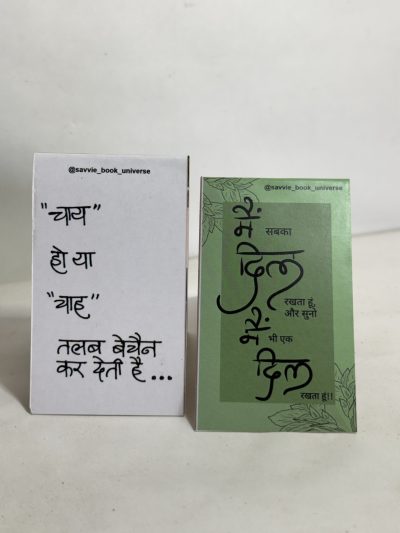 @savvie_book_universe
"चाय"
हो या
"चाह"
तलब बेचैन
कर देती है...
@savvie_book_universe
मैं
सबका
दिल
रखता हूं,
और सुनो
मैं
भी एक
दिल
रखता हूं!!